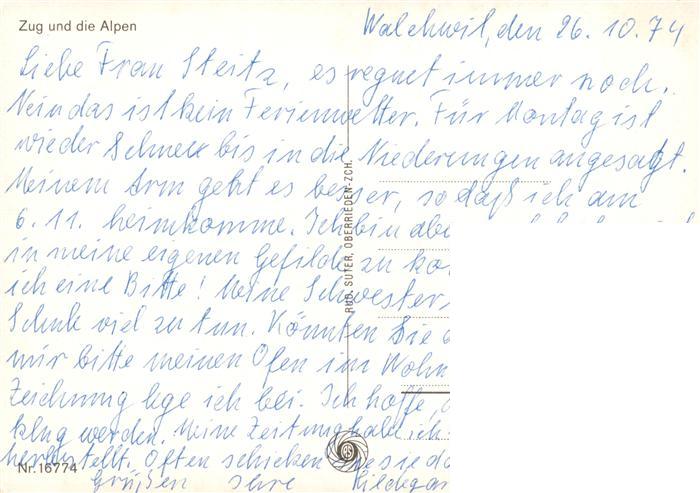 Zug und die Alpen
Walchwil, den 26. 10. 74
Liebe Frau Steitz, es regnet immer noch.
Nein das ist kein Ferienwetter. Für Montag ist
wieder Schnee bis in die Niederungen angesagt.
Meinem Arm geht es besser, so daß ich am
6. 11. heimkomme. Ich bin
in meine eigenen Gefilde zu
ich eine Bitte! Meine Schwester
Schule viel zu tun. Könnten Sie
mir bitte meinen Ofen im
Zeichnung lege ich bei. Ich hoffe,
klug werden. Meine Zeitung habe ich
Grüßen
RUD. SUTER, OBERRIEDEN-ZCH.
Nr. 16774